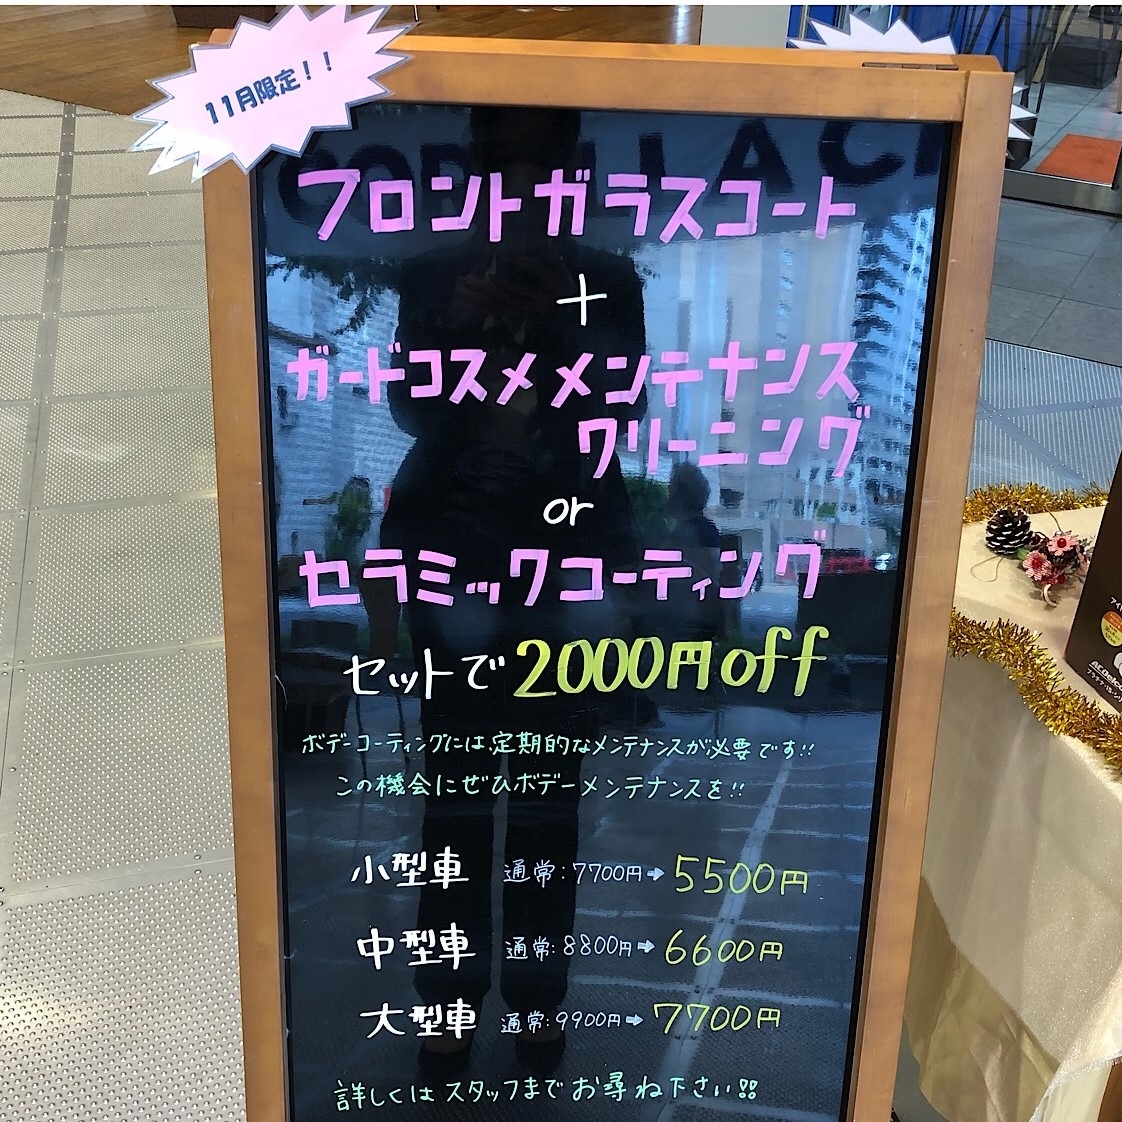 11月限定！！
フロントガラスコート
＋
ガードコスメメンテナンス
クリーニング
or
セラミックコーティング
セットで2000円off
ボデーコーティングには定期的なメンテナンスが必要です!!
この機会にぜひボデーメンテナンスを!!
小型車 通常:7700円➡5500円
中型車 通常:8800円➡6600円
大型車 通常:9900円➡7700円
詳しくはスタッフまでお尋ね下さい!!
ACDelco